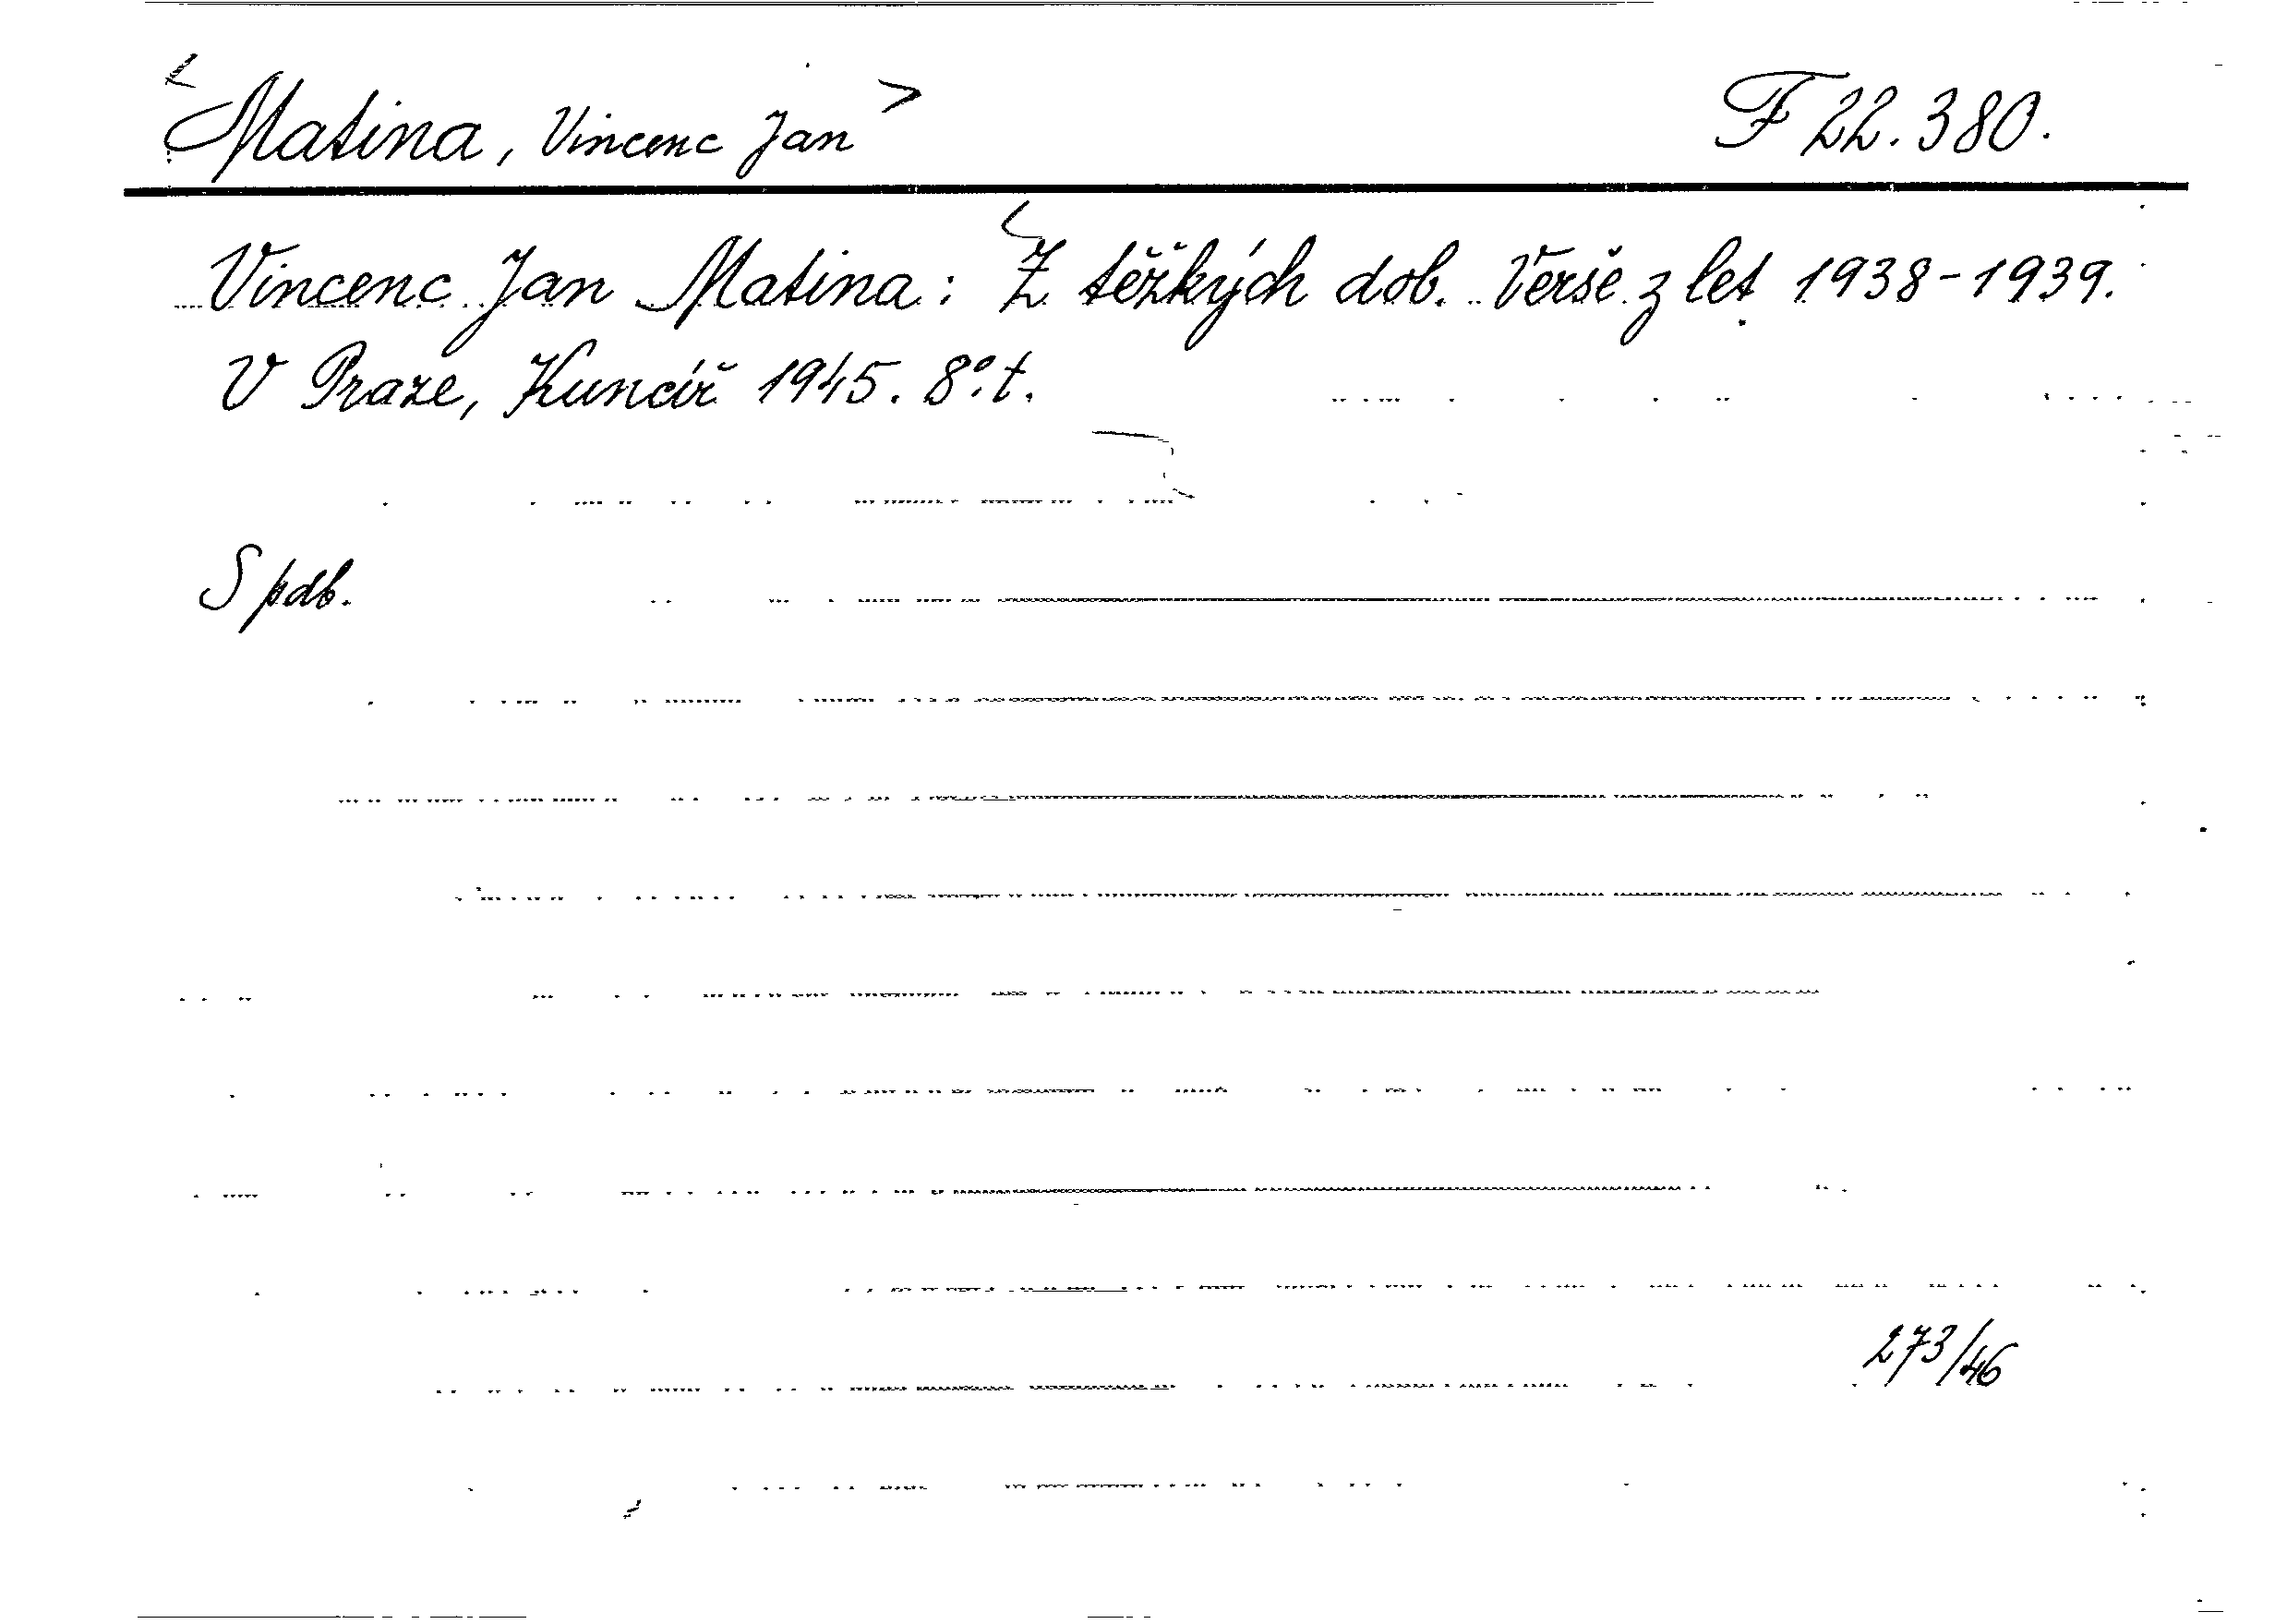 <Matina, Vincenc Jan> F 22.380.
Vincenc Jan Matina: <Z těžkých dob. Verše z let 1938-1939.
V Praze, Kuncíř 1945. 8°. t.
S pdb.
273/46